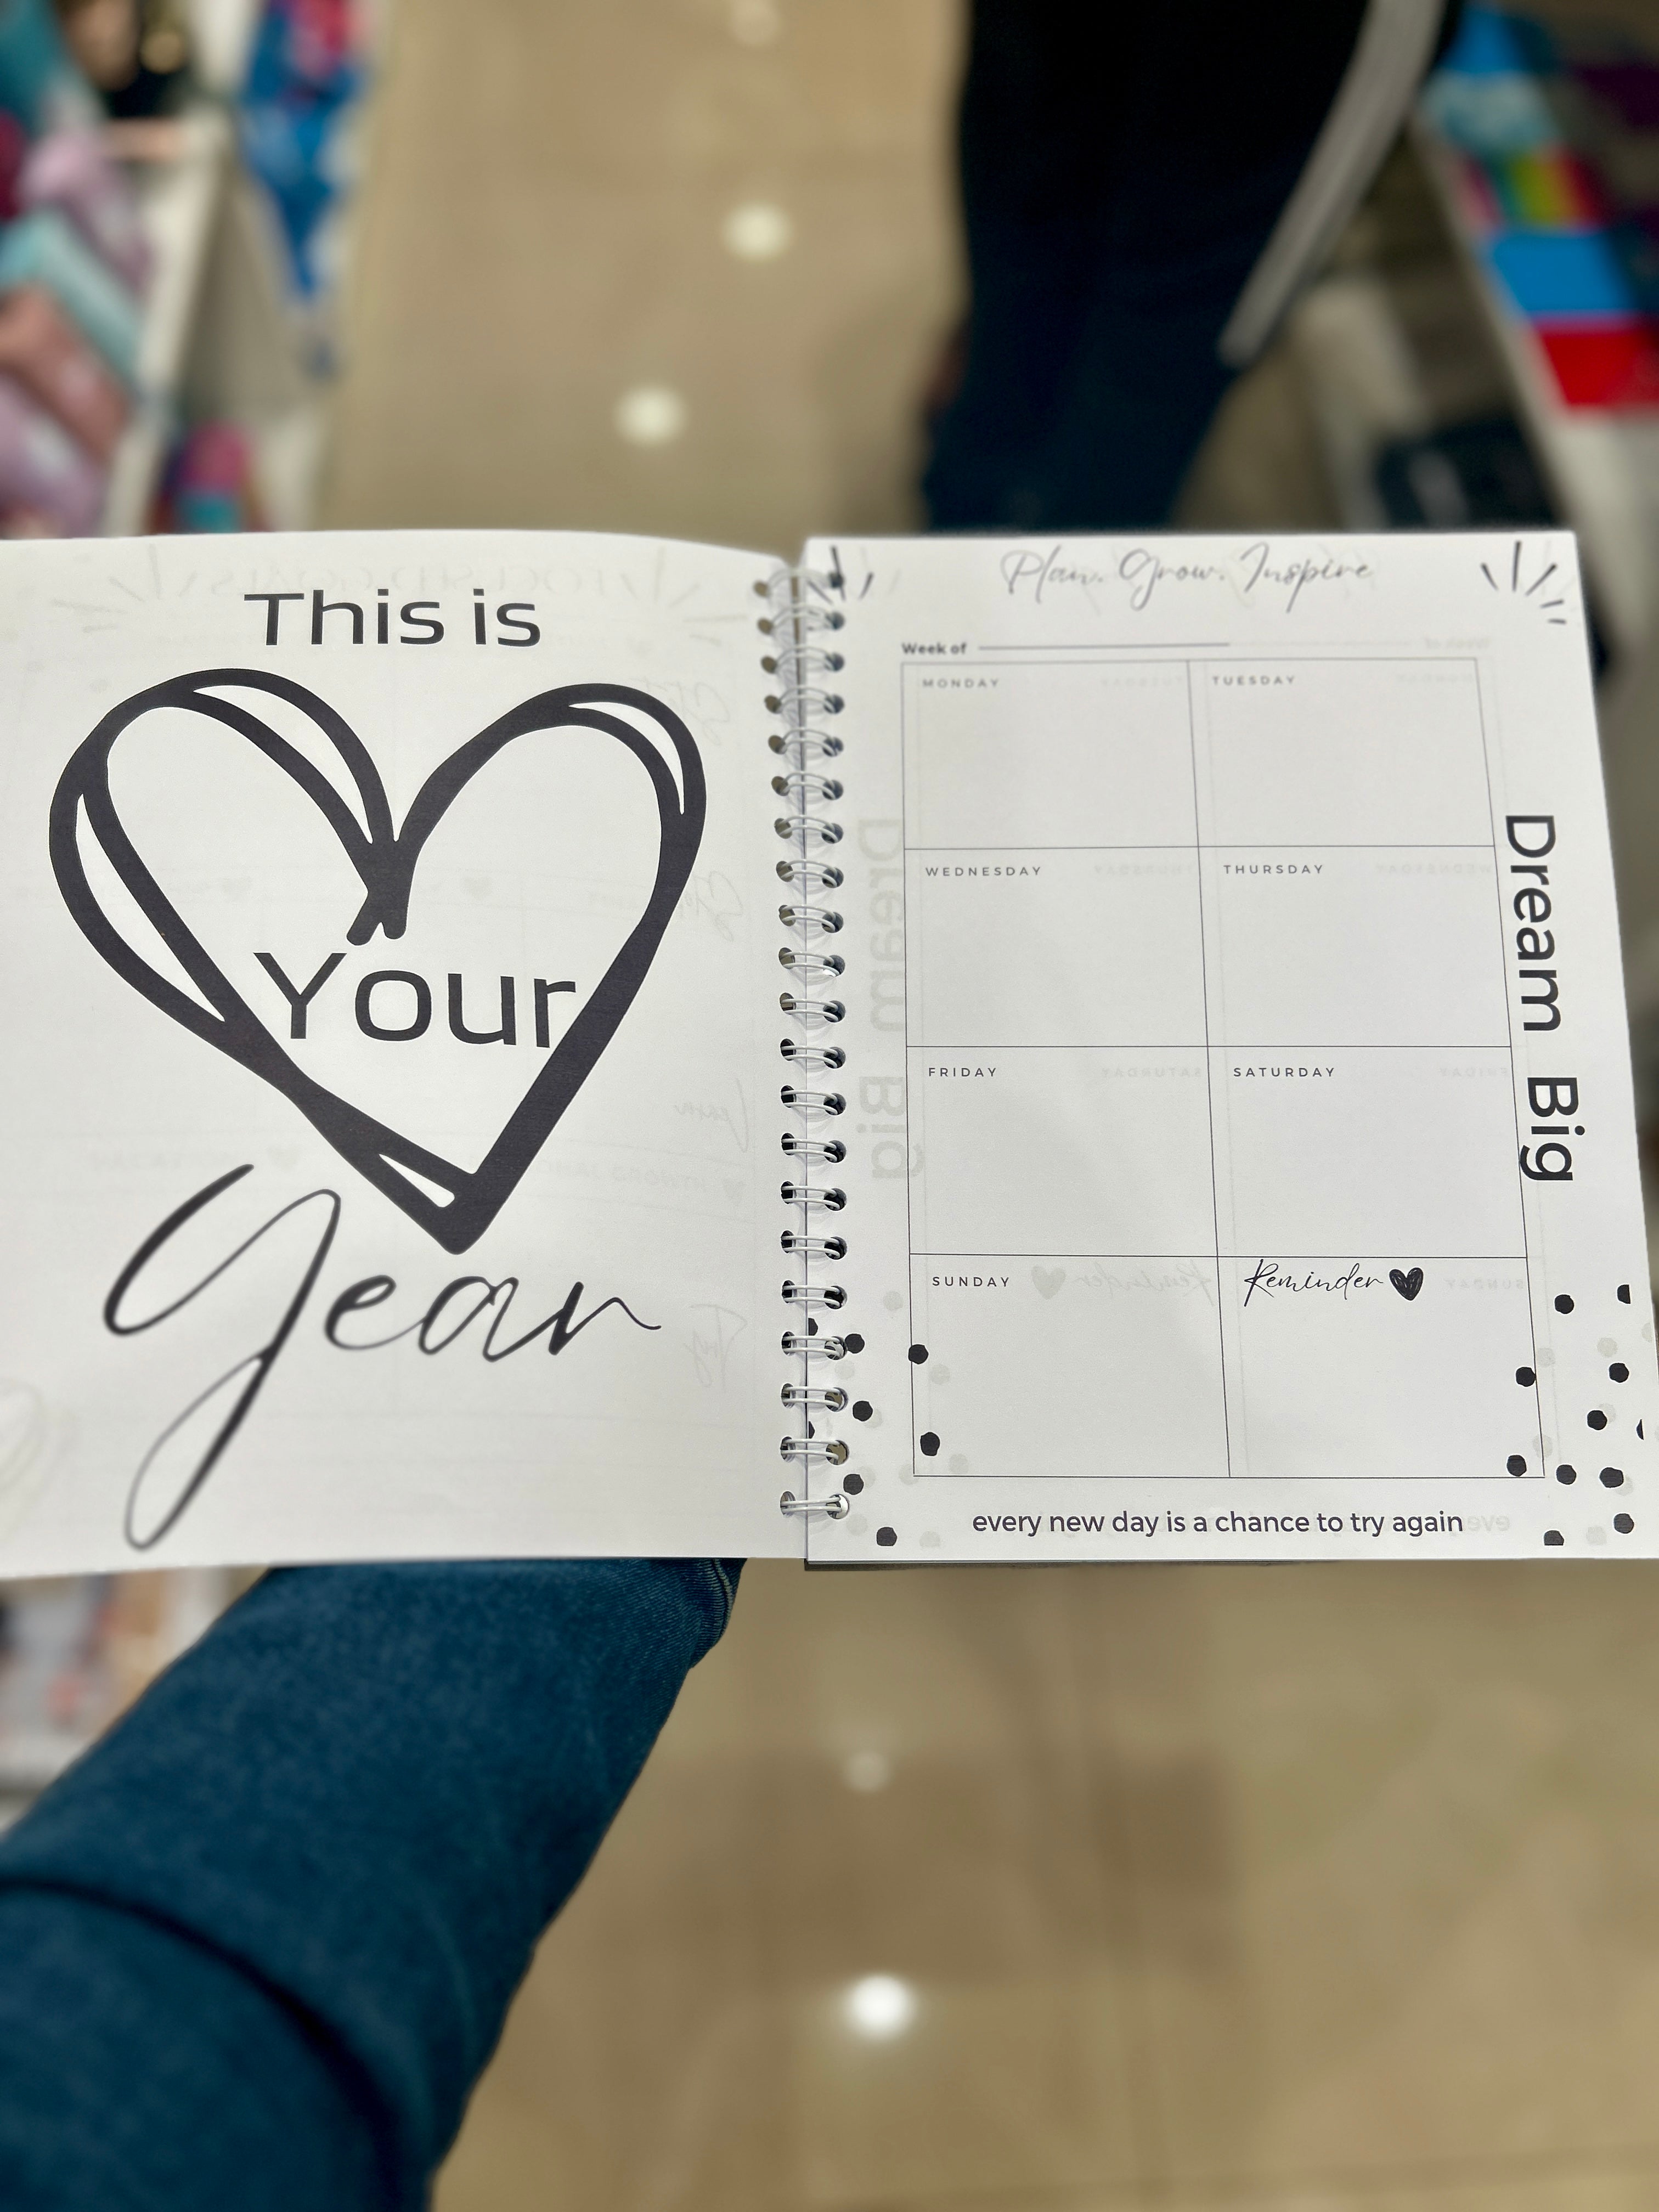 This is
Your
Year
Plan. Grow. Inspire
Week of
MONDAY
TUESDAY
WEDNESDAY
THURSDAY
FRIDAY
SATURDAY
SUNDAY
Reminder
Dream Big
every new day is a chance to try again